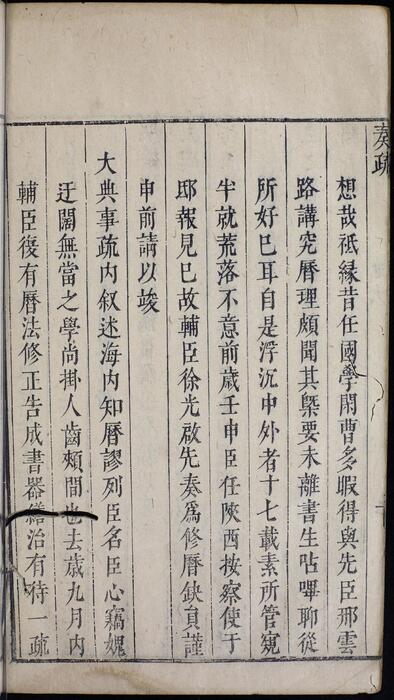 奏疏
想哉祗緣昔任國學閑曹多暇得與先臣邢雲
路講究曆理頗聞其槩要未離書生呫嗶聊從
所好巳耳自是浮沉中外者十七載素所管窺
半就荒落不意前歲壬申臣任陝西按察使于
邸報見巳故輔臣徐光啟先奏為修曆缺員謹
申前請以竣
大典事疏內叙述海內知曆謬列臣名臣心竊媿
迂闊無當之學尚掛人齒頰間也去歲九月內
輔臣復有曆法修正告成書器繕治有待一疏